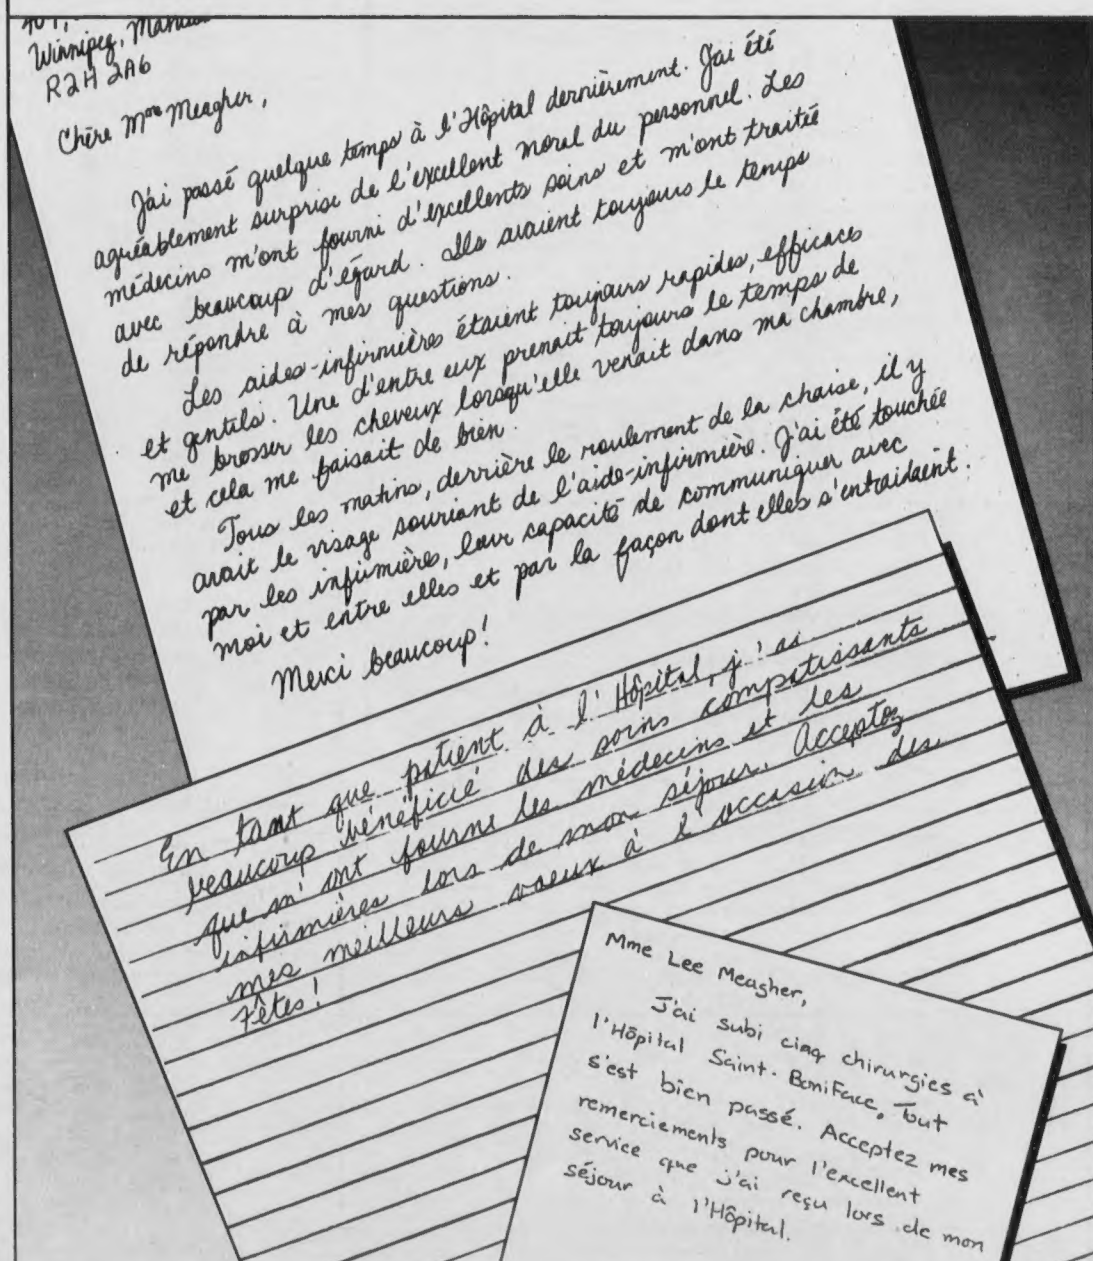 Winnipeg,
R2H 2A6
Chère Mme Meagher,
J'ai passé quelque temps à l'Hôpital dernièrement. J'ai été
agréablement surprise de l'excellent moral du personnel. Les
médecins m'ont fourni d'excellents soins et m'ont traitée
avec beaucoup d'égard. Ils avaient toujours le temps
de répondre à mes questions.
Les aides-infirmières étaient toujours rapides, efficaces
et gentils. Une d'entre eux prenait toujours le temps de
me brosser les cheveux lorsqu'elle venait dans ma chambre,
et cela me faisait de bien.
Tous les matins, derrière le roulement de la chaise, il y
avait le visage souriant de l'aide-infirmière. J'ai été touchée
par les infirmières, leur capacité de communiquer avec
moi et entre elles et par la façon dont elles s'entraidaient.
Merci beaucoup!
En tant que patient à l'Hôpital, j'ai
beaucoup bénéficié des soins compatissants
que m'ont fournis les médecins et les
infirmières lors de mon séjour. Acceptez
mes meilleurs voeux à l'occasion des
Fêtes!
Mme Lee Meagher,
J'ai subi cinq chirurgies à
l'Hôpital Saint-Boniface, tout
s'est bien passé. Acceptez mes
remerciements pour l'excellent
service que j'ai reçu lors de mon
séjour à l'Hôpital.